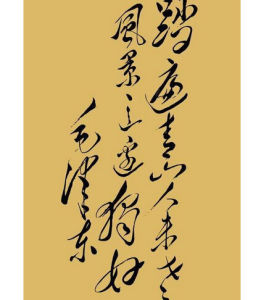 踏遍青山人未老
風景这邊獨好
毛泽东